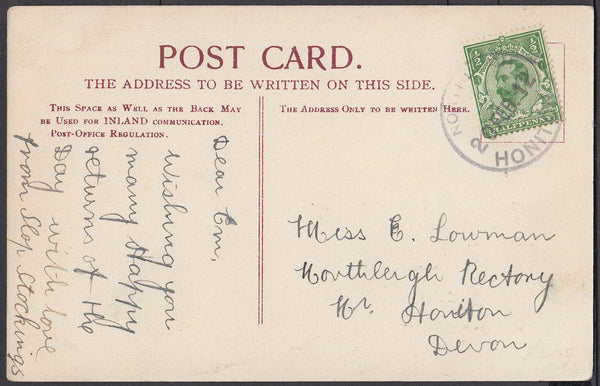 POST CARD.
THE ADDRESS TO BE WRITTEN ON THIS SIDE.
THIS SPACE AS WELL AS THE BACK MAY
BE USED FOR INLAND COMMUNICATION.
POST-OFFICE REGULATION.
THE ADDRESS ONLY TO BE WRITTEN HERE.
Dear Em,
wishing you
many Happy
returns of the
Day with love
from Slop Stockings
Miss E. Lowman
Northleigh Rectory
Nr. Honiton
Devon
½ ½
HONIT